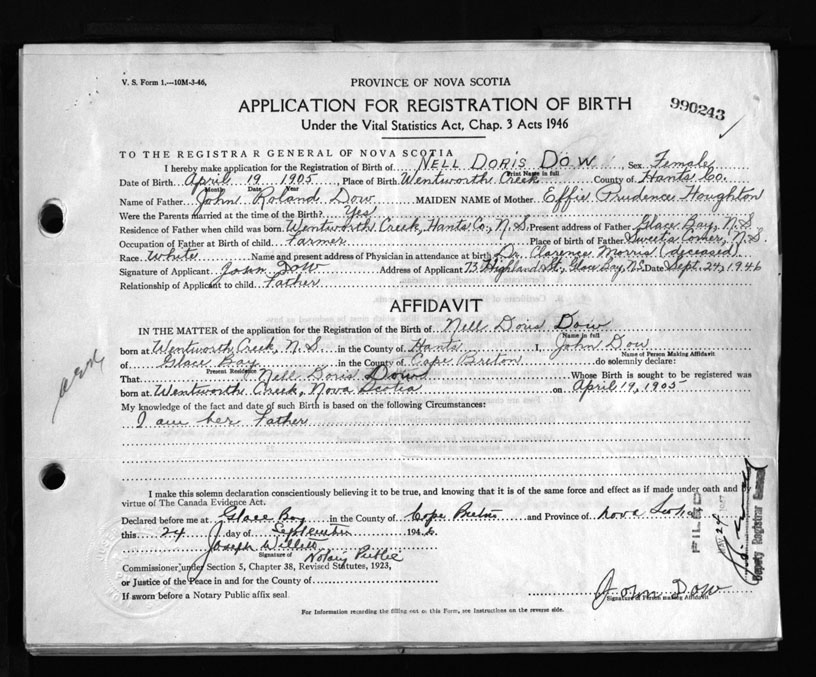 V. S. Form 1.—10M-3-46,
PROVINCE OF NOVA SCOTIA
990243
APPLICATION FOR REGISTRATION OF BIRTH
Under the Vital Statistics Act, Chap. 3 Acts 1946
TO THE REGISTRAR GENERAL OF NOVA SCOTIA
I hereby make application for the Registration of Birth of NELL DORIS DOW, Sex Female
Print Name in full
Date of Birth April 19 1905, Place of Birth Wentworth Creek County of Hants Co.
Month Date Year
Name of Father John Roland Dow MAIDEN NAME of Mother Effie Prudence Houghton
Were the Parents married at the time of the Birth? Yes
Residence of Father when child was born Wentworth Creek, Hants Co, N.S. Present address of Father Glace Bay, N.S
Occupation of Father at Birth of child Farmer Place of Birth of Father Corner, N.S.
Race White Name and present address of Physician in attendance at Birth Dr. Clarence Morris (deceased)
Signature of Applicant John Dow Address of Applicant 73 Highland St, Glace Bay, N.S. Date Sept. 24, 1946
Relationship of Applicant to child Father
AFFIDAVIT
IN THE MATTER of the application for the Registration of the Birth of Nell Doris Dow
Name in full
born at Wentworth Creek, N.S. in the County of Hants I, John Dow
Name of Person Making Affidavit
of Glace Bay in the County of Cape Breton do solemnly declare:
Present Residence
That Nell Doris Dow Whose Birth is sought to be registered was
born at Wentworth Creek, Nova Scotia on April 19, 1905
My knowledge of the fact and date of such Birth is based on the following Circumstances:
I am her Father
I make this solemn declaration conscientiously believing it to be true, and knowing that it is of the same force and effect as if made under oath and
virtue of The Canada Evidence Act.
Declared before me at Glace Bay in the County of Cape Breton and Province of Nova Scotia
this 24 day of September 1946.
Joseph Notary Public
Signature of
Commissioner under Section 5, Chapter 38, Revised Statutes, 1923,
or Justice of the Peace in and for the County of
If sworn before a Notary Public affix seal
John Dow
Signature of Person making Affidavit
For Information regarding the filling out of this Form, see Instructions on the reverse side.
FILED
Deputy Registrar General